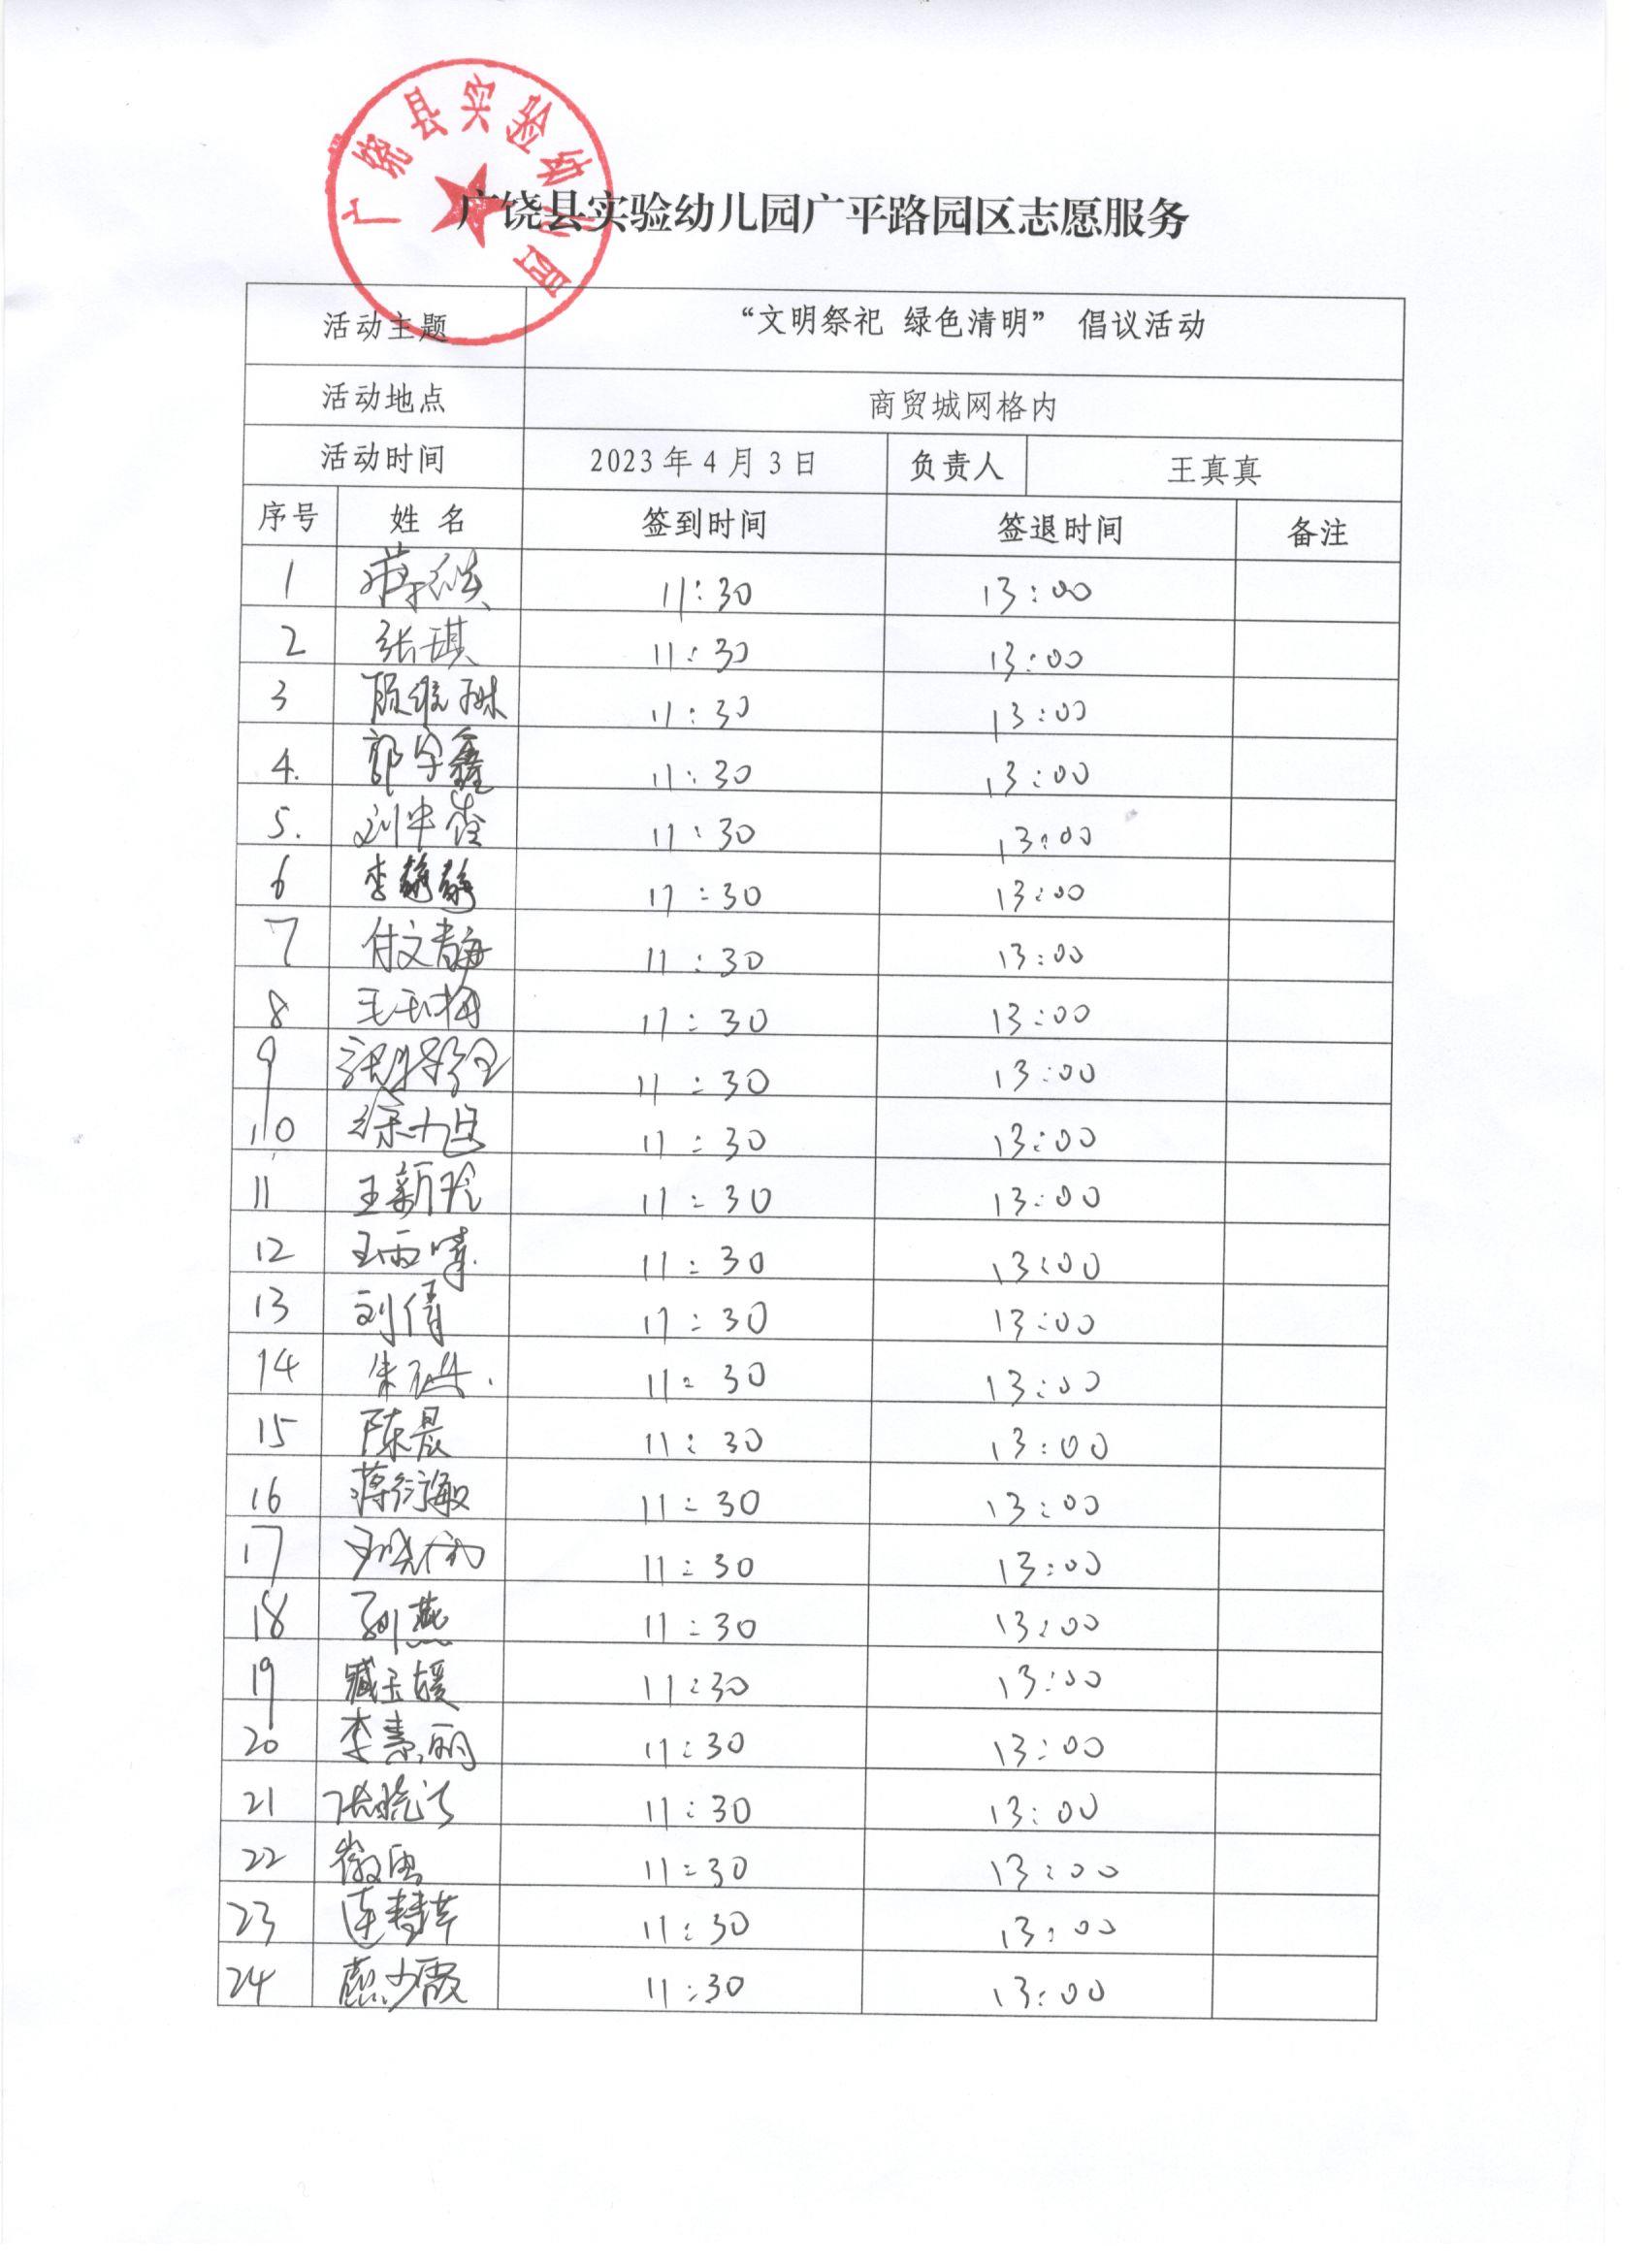 广饶县实验幼儿园
广饶县实验幼儿园广平路园区志愿服务
活动主题 “文明祭祀 绿色清明” 倡议活动
活动地点 商贸城网格内
活动时间 2023年4月3日 负责人 王真真
序号 姓名 签到时间 签退时间 备注
1 11:30 13:00
2 张琪 11:30 13:00
3 11:30 13:00
4. 郭宇鑫 11:30 13:00
5. 11:30 13:00
6 李静静 11:30 13:00
7 付文静 11:30 13:00
8 王玉梅 11:30 13:00
9 11:30 13:00
10 11:30 13:00
11 王新玲 11:30 13:00
12 王雨晴 11:30 13:00
13 刘倩 11:30 13:00
14 11:30 13:00
15 陈晨 11:30 13:00
16 蒋衍敏 11:30 13:00
17 11:30 13:00
18 孙燕 11:30 13:00
19 臧玉媛 11:30 13:00
20 李素丽 11:30 13:00
21 11:30 13:00
22 11:30 13:00
23 11:30 13:00
24 燕少霞 11:30 13:00